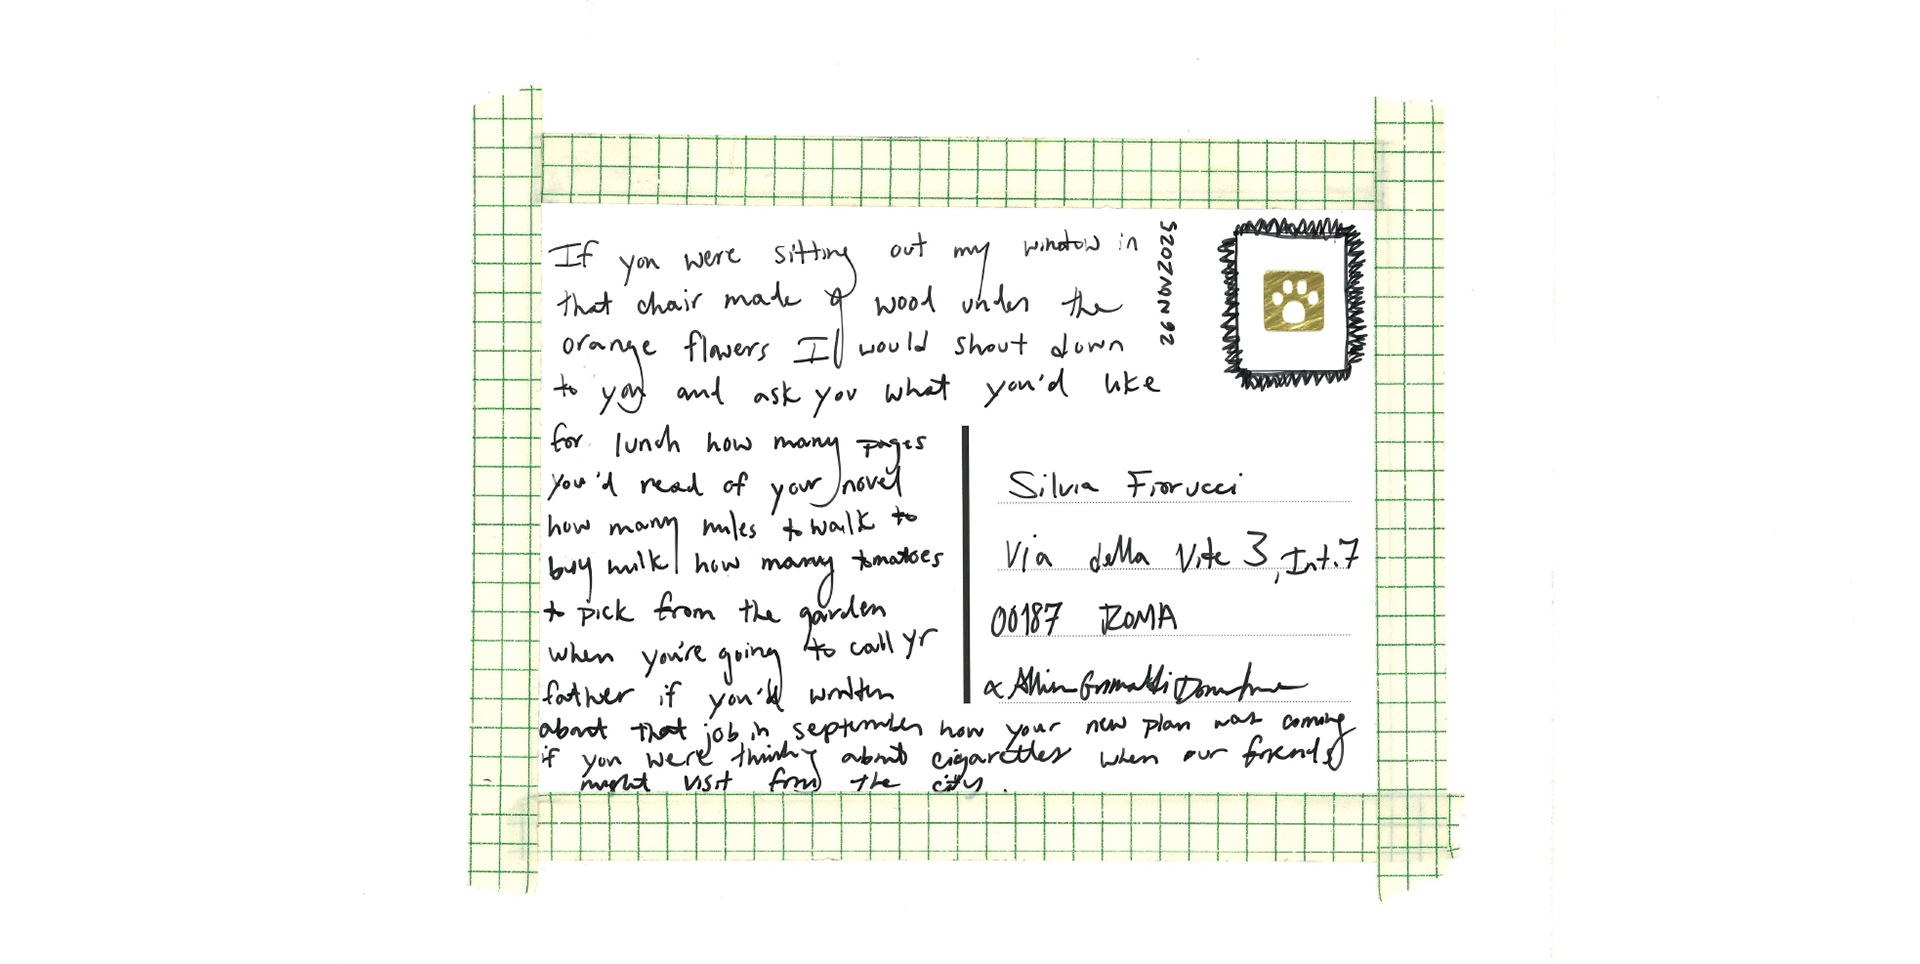 If you were sitting out my window in
that chair made of wood under the
orange flowers I would shout down
to you and ask you what you'd like
for lunch how many pages
you'd read of your novel
how many miles to walk to
buy milk how many tomatoes
to pick from the garden
when you're going to call yr
father if you'd written
about that job in september how your new plan was coming
if you were thinking about cigarettes when our friends
might visit from the city.
26 NOV 2025
Silvia Fiorucci
Via della Vite 3, Int. 7
00187 ROMA